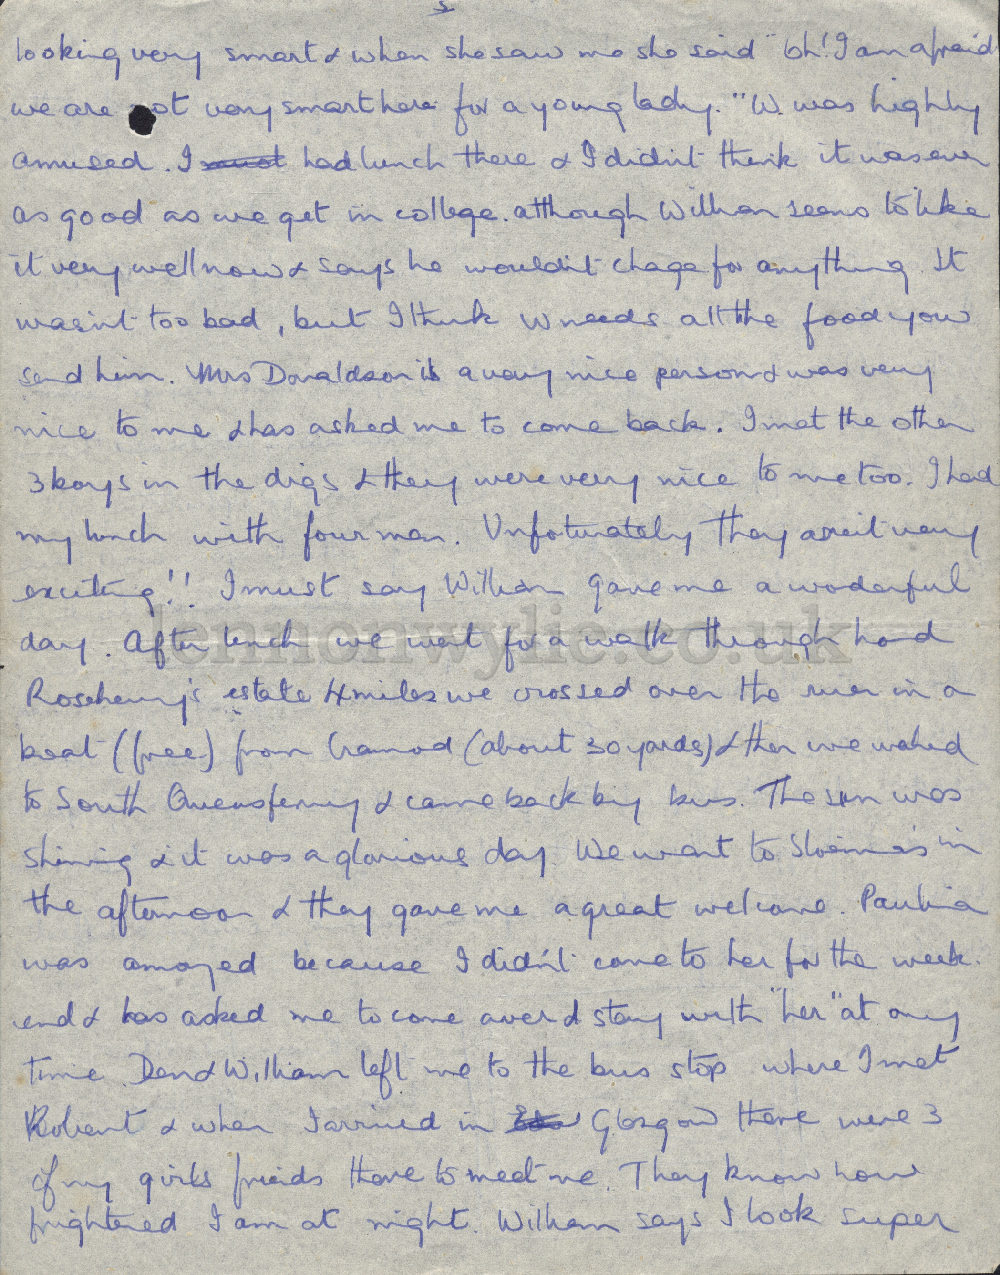 5
looking very smart & when she saw me she said "Oh! I am afraid
we are not very smart here for a young lady." W. was highly
amused. I had lunch there & I didn't think it was even
as good as we get in college. although William seems to like
it very well now & says he wouldn't chage for anything. It
wasn't too bad, but I think W needs all the food you
send him. Mrs Donaldson is a very nice person & was very
nice to me & has asked me to come back. I met the other
3 boys in the digs & they were very nice to me too. I had
my lunch with four men. Unfortunately they aren't very
exciting!! I must say William gave me a woderful
day. After lunch we went for a walk through Lord
Roseberry's estate 4 miles we crossed over the river in a
boat (free) from Cramod (about 30 yards) & then we walked
to South Queensferry & came back by bus. The sun was
shining & it was a glorious day. We went to in
the afternoon & they gave me a great welcome. Paulina
was amazed because I didn't come to her for the week-
end & has asked me to come over & stay with "her" at any
time. Den & William left me to the bus stop where I met
Robert & when I arrived in Glasgow there were 3
of my girls friends there to meet me. They know how
frightened I am at night. William says I look super
lennonwylie.co.uk